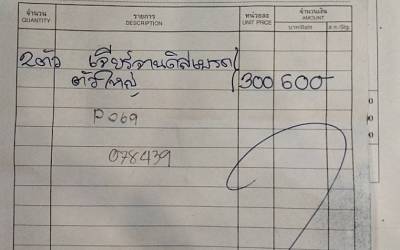 จำนวน รายการ หน่วยละ จำนวนเงิน
QUANTITY DESCRIPTION UNIT PRICE AMOUNT
บาท/Baht ส.ต./Stg.
2ตัว เจียร์จานดิสเบรก 300 600
ตัวใหญ่
P069
078439
0
0
0